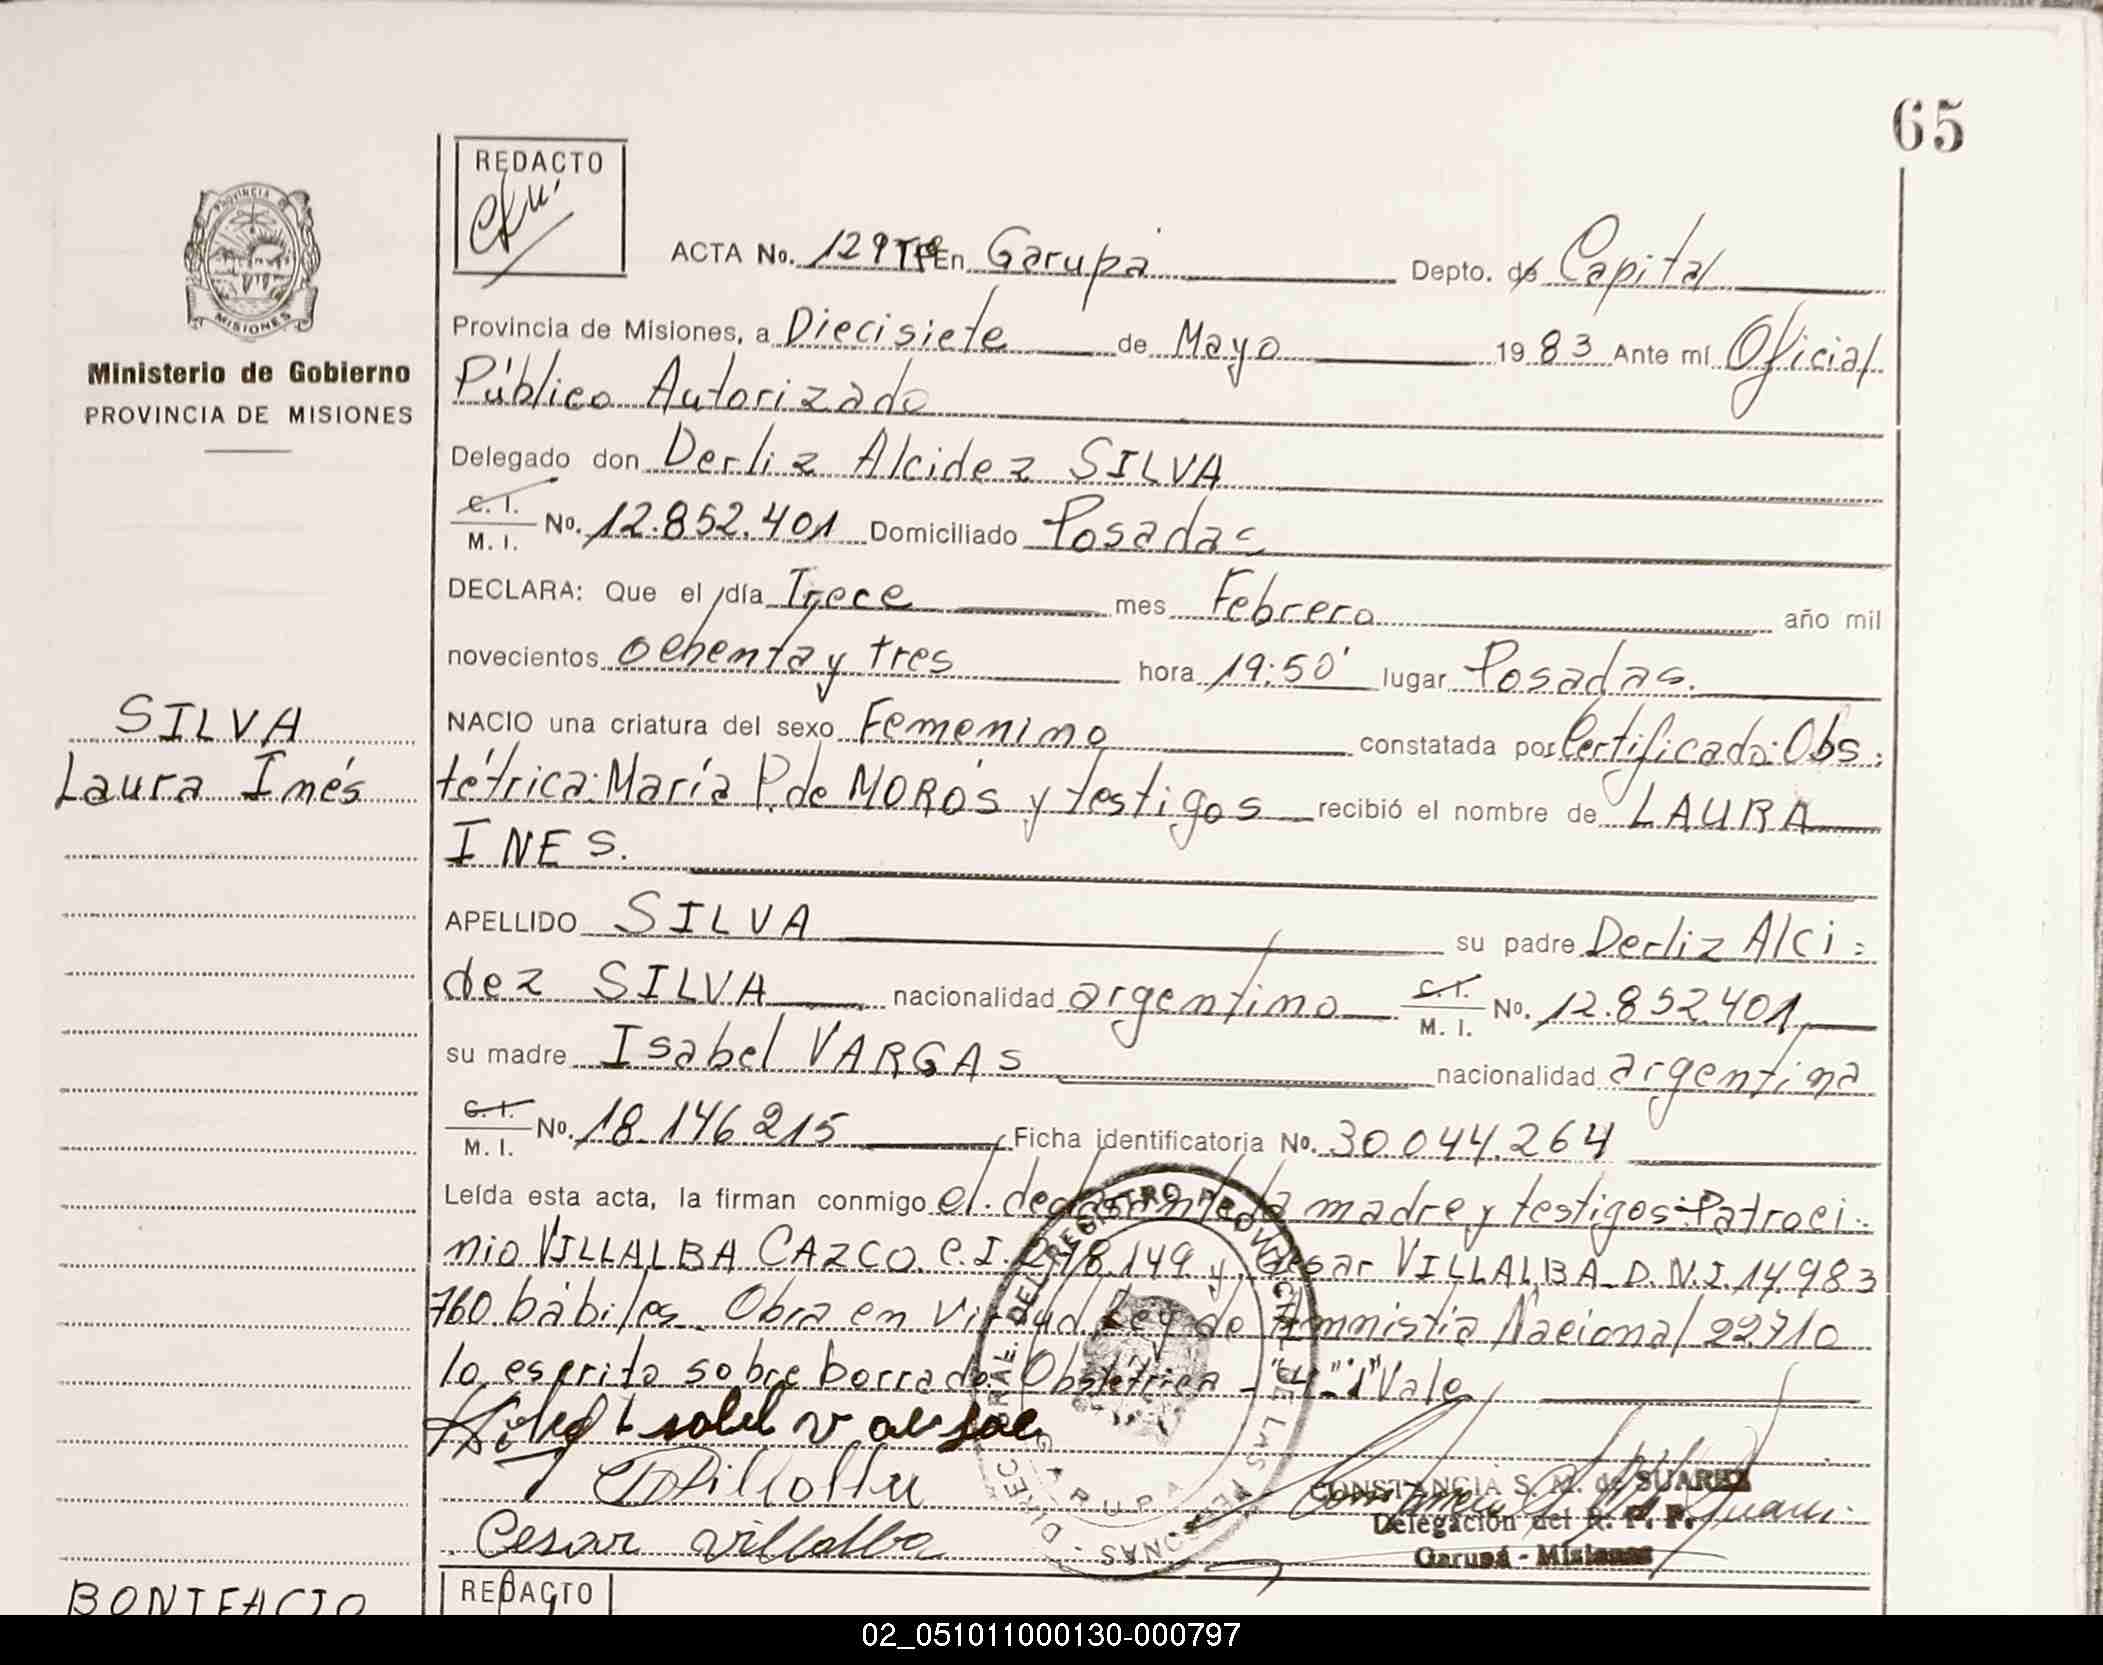 65
REDACTO
PROVINCIA
MISIONES
Ministerio de Gobierno
PROVINCIA DE MISIONES
ACTA No. 129 Tº En Garupá Depto. de Capital
Provincia de Misiones, a Diecisiete de Mayo 1983 Ante mí Oficial
Público Autorizado
Delegado don Derliz Alcidez SILVA
C. I.
M. I. No. 12.852.401 Domiciliado Posadas
DECLARA: Que el día Trece mes Febrero año mil
novecientos ochenta y tres hora 19:50' lugar Posadas.
SILVA
Laura Inés
NACIO una criatura del sexo Femenino constatada por Certificado: Obs:
tétrica: María P. de MOROS y testigos recibió el nombre de LAURA
INES.
APELLIDO SILVA su padre Derliz Alci:
dez SILVA nacionalidad argentino C. I.
M. I. No. 12.852.401
su madre Isabel VARGAS nacionalidad argentina
C. I.
M. I. No. 18.146 215 Ficha identificatoria No. 30 044.264
Leída esta acta, la firman conmigo el declarante la madre y testigos: Patroci:
nio VILLALBA CAZCO. C.I. 278.149 y Cesar VILLALBA D.N.I. 14.983
760 hábiles. Obra en Virtud Ley de Amnistia Nacional 22.710
lo escrito sobre borrado: Obstétrica - "el" - "1" Vale
Isabel Vargas
Cesar Villalba
DIREC GRAL. DEL REGISTRO PROVINCIAL DE LAS PERSONAS
GARUPA
CONSTANCIA S. M. de SUAREZ
Delegación del R. P. P.
Garupá - Misiones
BONIFACIO
REDACTO
02_051011000130-000797